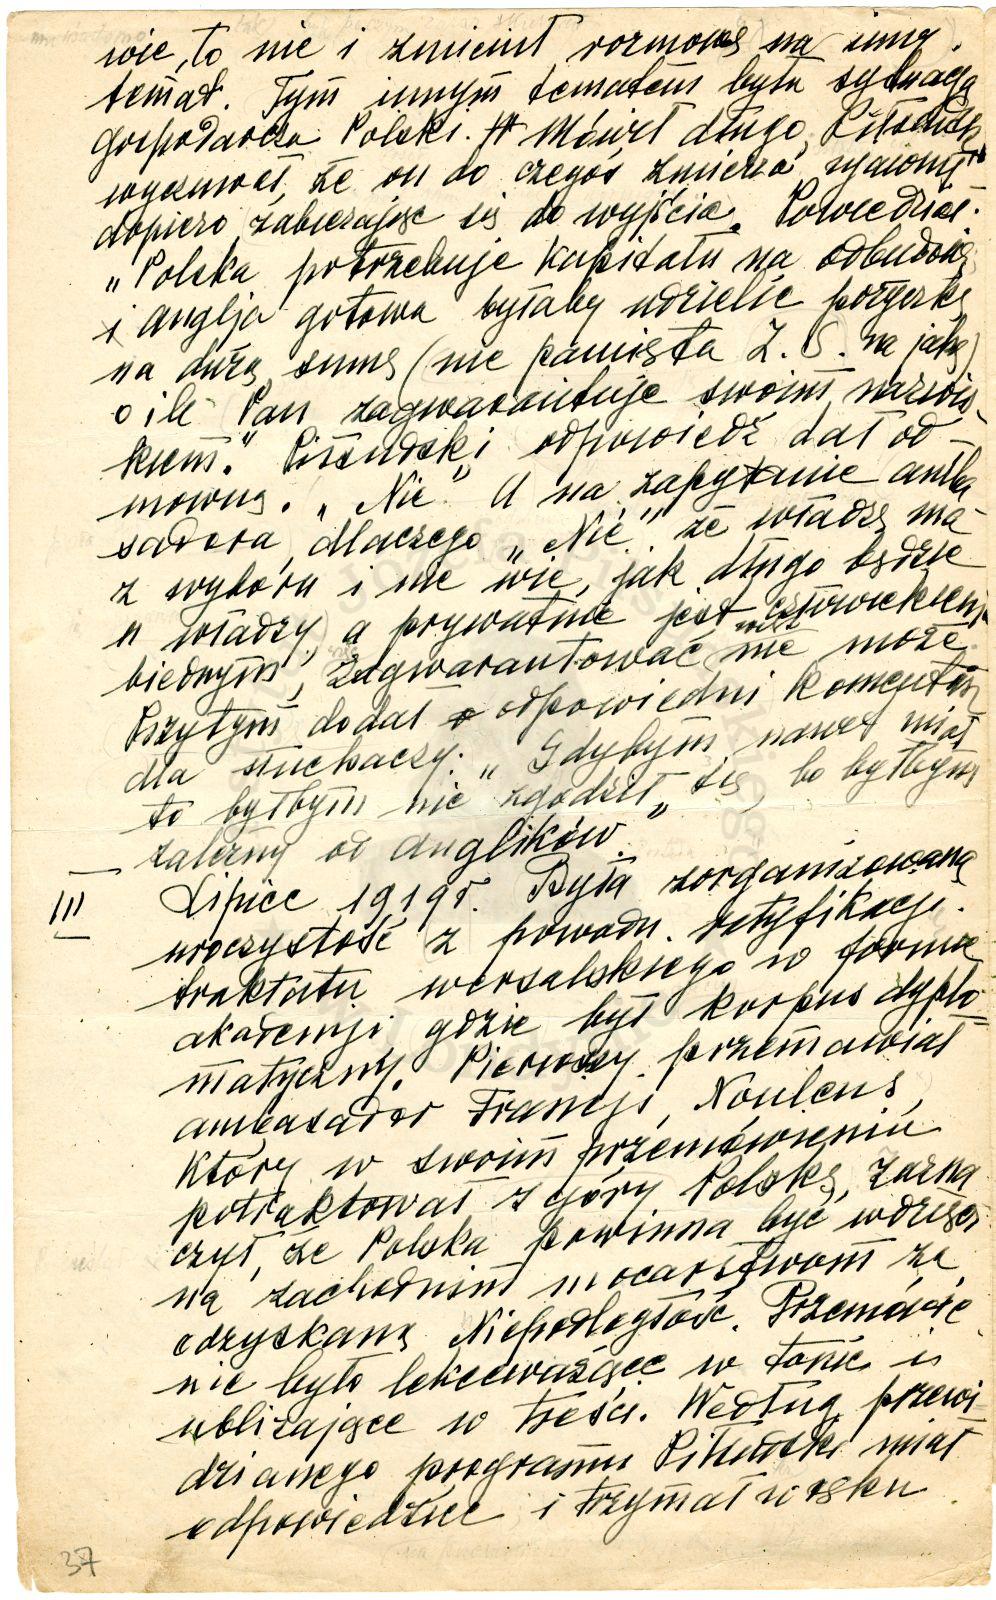 wie, to nie i zmienił rozmowę na inny
temat. Tym innym tematem była sytuacja
gospodarcza Polski. Mówił długo, Piłsudski
wyczuwał, że on do czegoś zmierza,
dopiero zabierając się do wyjścia. Powiedział:
„Polska potrzebuje kapitału na odbudowę
i Anglja gotowa byłaby udzielić pożyczkę
na dużą sumę (nie pamięta Z. S. na jaką)
o ile Pan zagwarantuje swoim nazwis-
kiem." Piłsudski odpowiedź dał od-
mowną. „Nie". A na zapytanie amba
sadora, dlaczego „Nie", że władzę ma
z wyboru i nie wie, jak długo będzie
u władzy, a prywatnie jest człowiekiem
biednym, zagwarantować więc nie może.
Przytym dodał odpowiedni komentarz
dla słuchaczy: „Gdybym nawet miał
to byłbym nie zgodził się, bo byłbym
zależny od Anglików."
III Lipiec 1919 r. Była zorganizowana
uroczystość z powodu ratyfikacji
traktatu wersalskiego w formie
akademji gdzie był korpus dyplo
matyczny. Pierwszy przemawiał
ambasador Francji, Noulens,
który w swoim przemówieniu
potraktował z góry Polskę, zazna
czył, że Polska powinna być wdzięcz
na zachodnim mocarstwom za
odzyskaną Niepodległość. Przemówie
nie było lekceważące w tonie i
ubliżające w treści. Według przewi-
dzianego programu Piłsudski miał
odpowiedzieć i trzymał w ręku
37